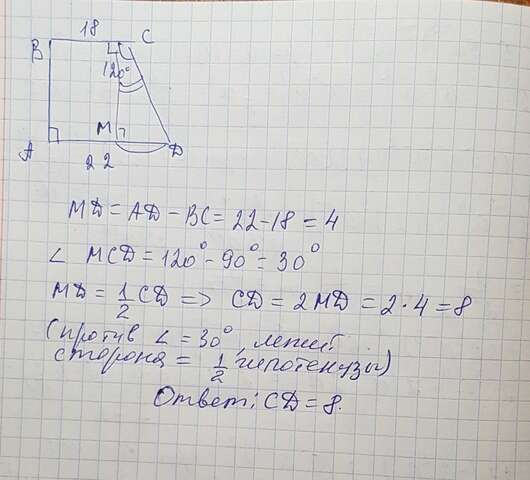 18
B C
120°
M
A 22 D
MD = AD - BC = 22 - 18 = 4
∠ MCD = 120° - 90° = 30°
MD = 1/2 CD => CD = 2MD = 2 · 4 = 8
(против ∠ = 30° лежит
сторона = 1/2 гипотенузы)
Ответ: CD = 8.